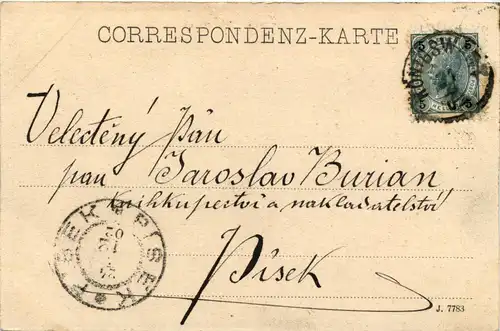 CORRESPONDENZ-KARTE
Velectěný Pán
pan Jaroslav Burian
knihkupectví a nakladatelství
Písek
PISEK ✱ PISEK
J. 7783